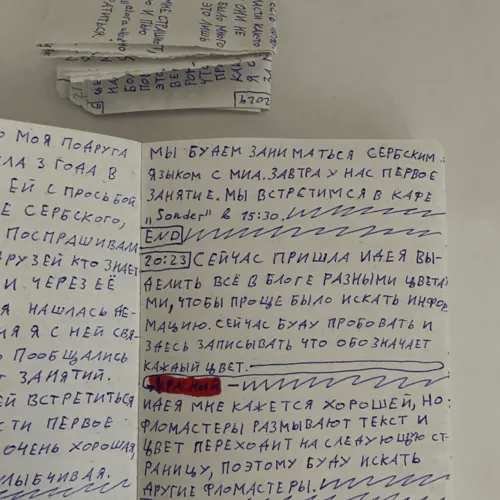 О МОЯ ПОДРУГА
ЛА 3 ГОДА В
ЕЙ С ПРОСЬБОЙ
Е СЕРБСКОГО,
ПОСПРАШИВАЛА
РУЗЕЙ КТО ЗНАЕТ
И ЧЕРЕЗ ЕЁ
Я НАШЛАСЬ ДЕ-
Я С НЕЙ СВЯ-
О ПООБЩАЛИСЬ
Т ЗАНЯТИЙ.
ЕЙ ВСТРЕТИТЬСЯ
СТИ ПЕРВОЕ
ОЧЕНЬ ХОРОШАЯ,
ЛЫБЧИВАЯ.
МЫ БУДЕМ ЗАНИМАТЬСЯ СЕРБСКИМ
ЯЗЫКОМ С МИА. ЗАВТРА У НАС ПЕРВОЕ
ЗАНЯТИЕ. МЫ ВСТРЕТИМСЯ В КАФЕ
„Sonder" в 15:30.
END
20:23 СЕЙЧАС ПРИШЛА ИДЕЯ ВЫ-
ДЕЛИТЬ ВСЁ В БЛОГЕ РАЗНЫМИ ЦВЕТА
МИ, ЧТОБЫ ПРОЩЕ БЫЛО ИСКАТЬ ИНФОР
МАЦИЮ. СЕЙЧАС БУДУ ПРОБОВАТЬ И
ЗДЕСЬ ЗАПИСЫВАТЬ ЧТО ОБОЗНАЧАЕТ
КАЖДЫЙ ЦВЕТ.
КРАСНЫЙ –
ИДЕЯ МНЕ КАЖЕТСЯ ХОРОШЕЙ, НО
ФЛОМАСТЕРЫ РАЗМЫВАЮТ ТЕКСТ И
ЦВЕТ ПЕРЕХОДИТ НА СЛЕДУЮЩУЮ СТ-
РАНИЦУ, ПОЭТОМУ БУДУ ИСКАТЬ
ДРУГИЕ ФЛОМАСТЕРЫ.